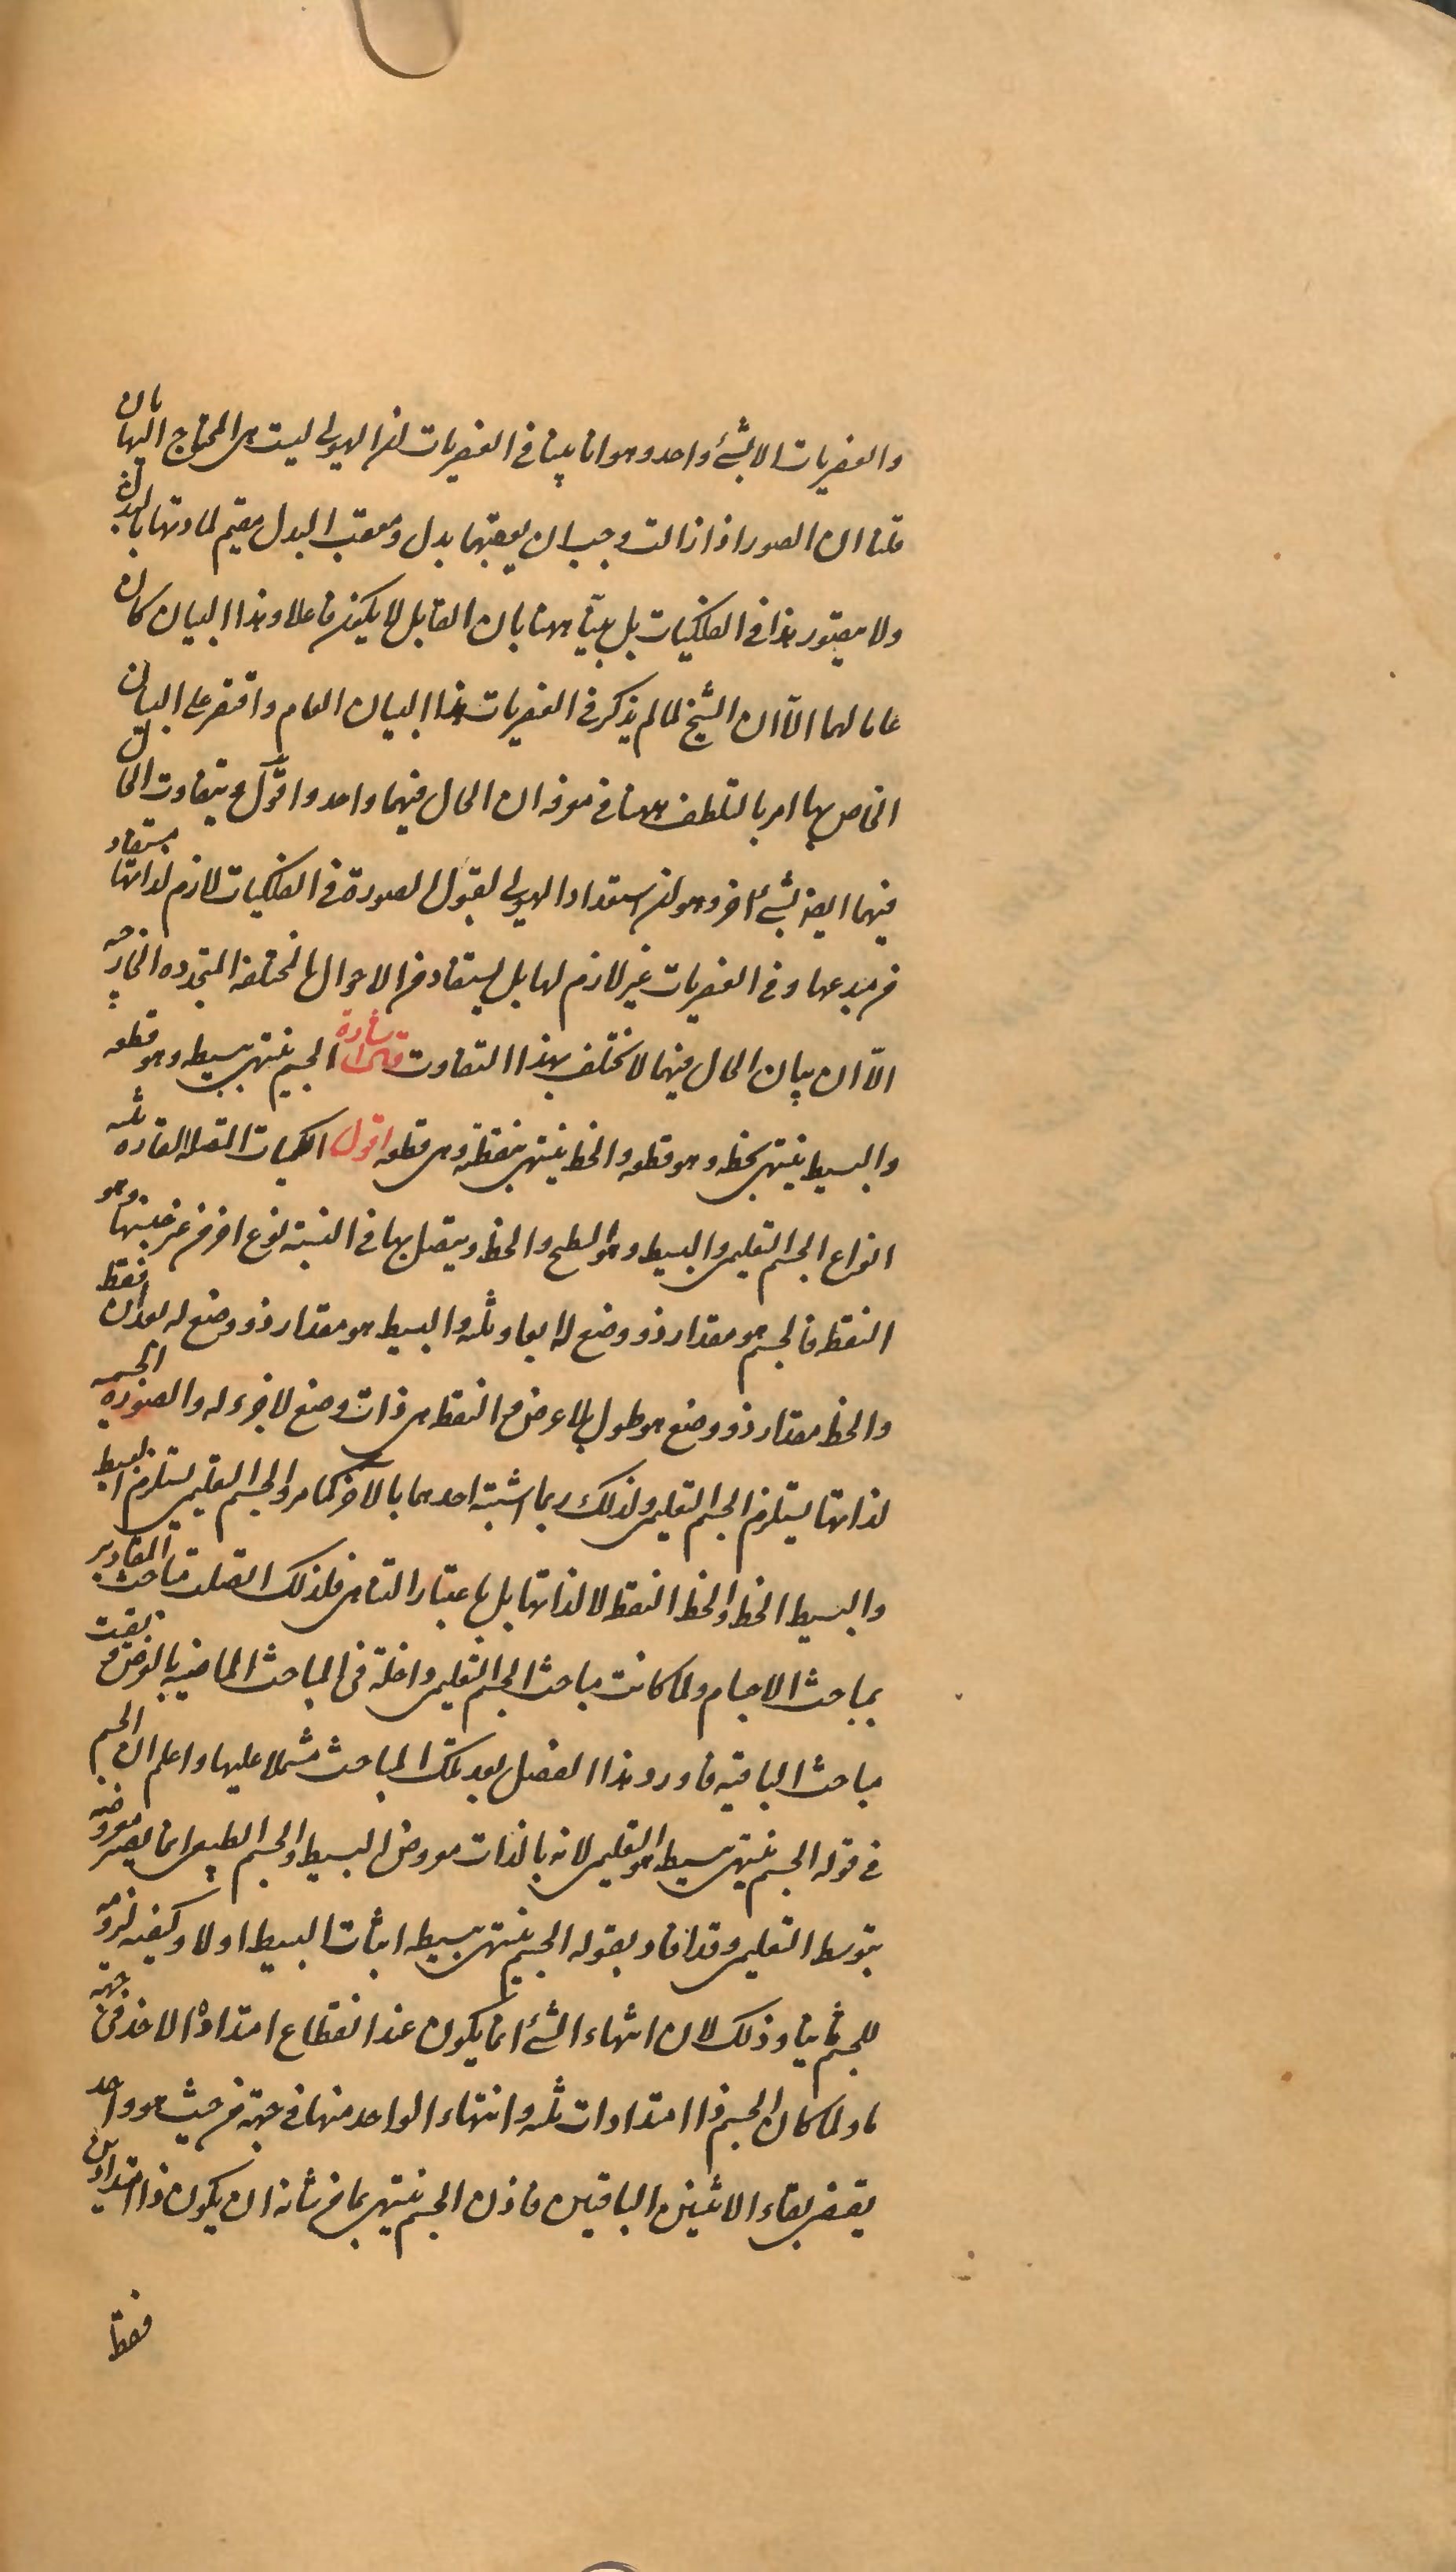 والعنصريات الا بشئ واحد وهو انا بينا فى العنصريات ان الهيولى ليست هى المحتاج اليها بان
قلنا ان الصور اذا زالت وجب ان يعقبها بدل ومعقب البدل مقيم لمادتها بالبدل
ولا يتصور هذا فى الفلكيات بل بينّا ههنا بان القابل لا يكون فاعلا وهذا البيان كان
عاما لهما الّا ان الشيخ لما لم يذكر فى العنصريات هذا البيان العام واقتصر على البيان
الخاص بها امر بالتلطف ههنا فى معرفه ان الحال فيهما واحد واقول ويتفاوت الحال
فيهما ايضا بشئ آخر وهو ان استعداد الهيولى لقبول الصورة فى الفلكيات لازم لذاتها مستفاد
من مبدعها وفى العنصريات غير لازم لها بل يستفاد من الاحوال المختلفه المتجدده الخارجه
الّا ان بيان الحال فيهما لا يختلف بهذا التفاوت اشارة الجسم ينتهى ببسيطه وهو قطعه
والبسيط ينتهى بخطه وهو قطعه والخط ينتهى بنقطته وهى قطعه اقول الكميات المتصلة القاره ثلثه
انواع الجسم التعليمى والبسيط وهو السطح والخط ويتصل بها فى النسبة نوع اخر من غير جنسها وهو
النقط فالجسم هو مقدار ذو وضع له ابعاد ثلثه والبسيط هو مقدار ذو وضع له بعدان فقط
والخط مقدار ذو وضع هو طول بلا عرض والنقط هى ذات وضع لا جزء له والصورة الجسميه
لذاتها يستلزم الجسم التعليمى ولذلك ربما اشتبه احدهما بالاخر كما مر والجسم التعليمى يستلزم البسيط
والبسيط الخط والخط النقط لا لذاتها بل باعتبار التناهى فلذلك اتصلت مباحث المقادير
بمباحث الاجسام ولما كانت مباحث الجسم التعليمى داخلة فى المباحث الماضيه بالعرض و بقيت
مباحث الباقيه فاورد هذا الفصل بعد تلك المباحث مشتملا عليها واعلم ان الجسم
فى قوله الجسم ينتهى ببسيطه هو التعليمى لانه بالذات معروض البسيط والجسم الطبيعى انما يصير معروضه
بتوسط التعليمى وقد افاد بقوله الجسم ينتهى ببسيطه اثبات البسيط اولا وكيفيه لزومه
للجسم ثانيا وذلك لان انتهاء الشئ انما يكون عند انقطاع امتداده الاخذ فى جهة
ما ولما كان الجسم ذا امتدادات ثلثه وانتهاء الواحد منها فى جهة من حيث هو واحد
يقتضى بقاء الاثنين الباقيين فاذن الجسم ينتهى بما من شانه ان يكون ذا امتدادين
فقط